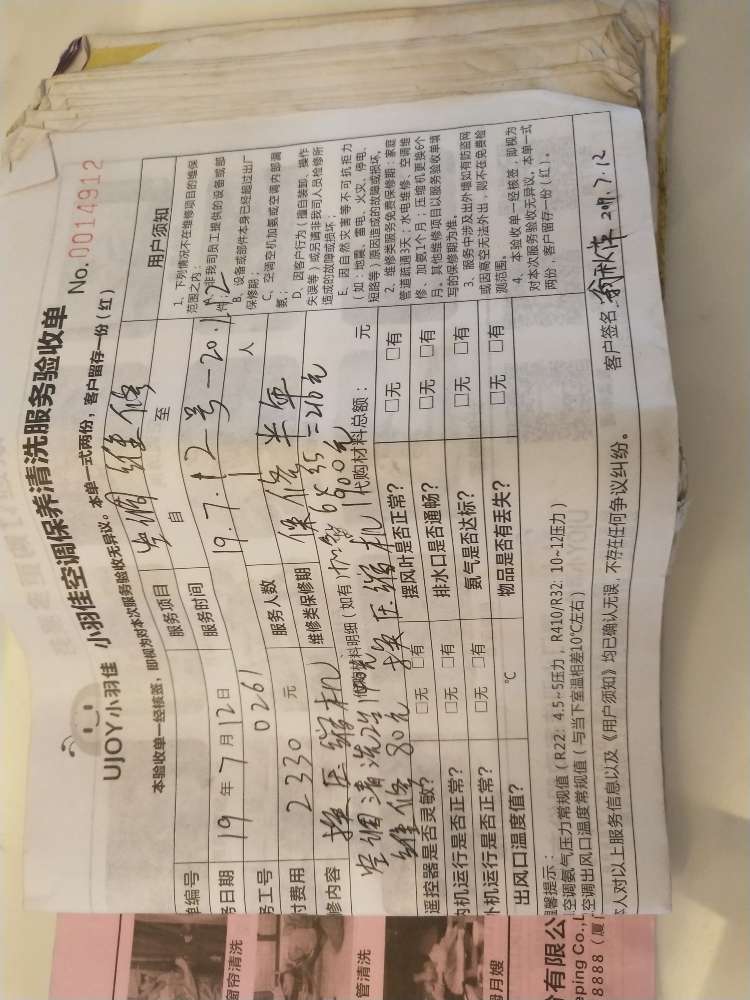 UJOY小羽佳 小羽佳空调保养清洗服务验收单 No.0014912
本验收单一经核签，即视为对本次服务验收无异议。本单一式两份，客户留存一份（红）
单编号
服务项目 空调维修
务日期 19年7月12日
服务时间 自 19.7.12号—20.1.12 至
务工号 0261
服务人数 人
付费用 2330元
维修类保修期 保修半年
修内容 换压缩机
代购材料明细（如有）
空调清洗
维修 80元 换压缩机1900元
代购材料总额： 元
遥控器是否灵敏？ □无 □有 摆风叶是否正常？ □无 □有
内机运行是否正常？ □无 □有 排水口是否通畅？ □无 □有
外机运行是否正常？ □无 □有 氨气是否达标？ □无 □有
出风口温度值？ ℃ 物品是否有丢失？ □无 □有
用户须知
1、下列情况不在维修项目的维保
范围之内：
A、非我司员工提供的设备或部
件；
B、设备或部件本身已经超过出厂
保修期；
C、空调空机加氨或空调内部漏
氨；
D、因客户行为（擅自装卸、操作
失误等）或另请非我司人员检修所
造成的故障或损坏；
E、因自然灾害等不可抗拒力
（如：地震、雷电、火灾、停电、
短路等）原因造成的故障或损坏。
2、维修类服务免费保修期：家庭
管道疏通3天；水电维修、空调维
修、加氨1个月；压缩机更换6个
月。其他维修项目以服务验收单填
写的保修期为准。
3、服务中涉及出外墙如有防盗网
或因高空无法外出，则不在免费检
测范围。
4、本验收单一经核签，即视为
对本次服务验收无异议。本单一式
两份，客户留存一份（红）。
温馨提示：
空调氨气压力常规值（R22：4.5~5压力；R410/R32：10~12压力）
空调出风口温度常规值（与当下室温相差10℃左右）
本人对以上服务信息以及《用户须知》均已确认无误，不存在任何争议纠纷。
客户签名： 2019.7.12
窗帘清洗
管清洗
月嫂
份有限公
eping Co.,L
8888（厦门